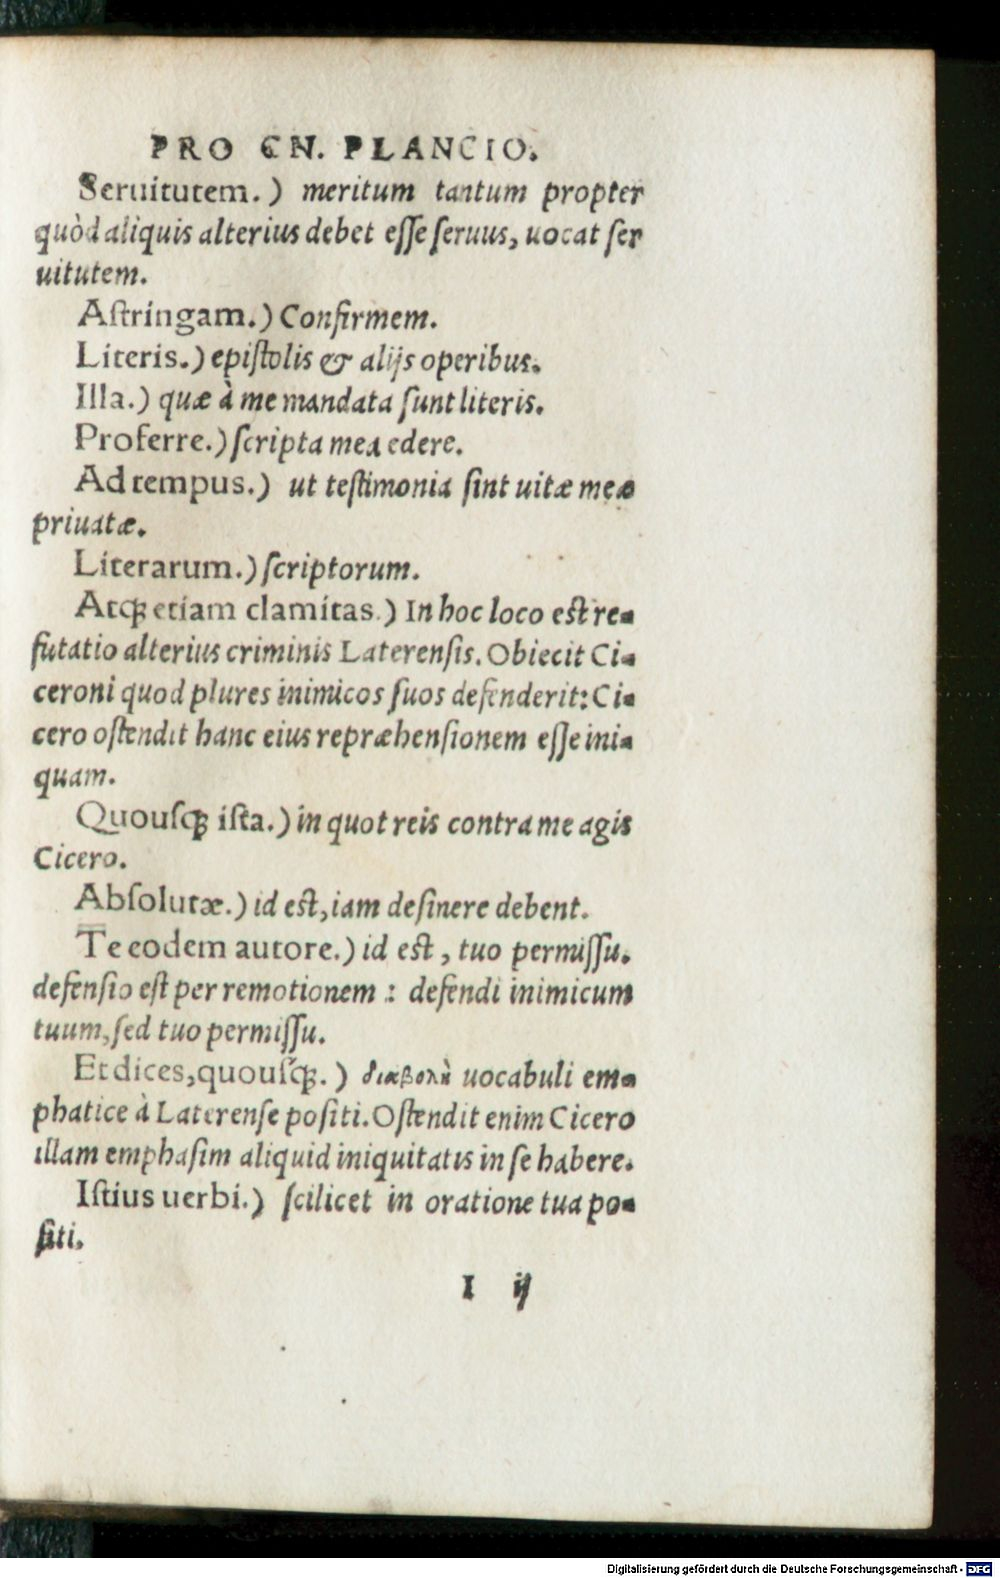 PRO CN. PLANCIO.
Seruitutem.) meritum tantum propter
quòd aliquis alterius debet eſſe ſeruus, uocat ſer
uitutem.
Aſtringam.) Confirmem.
Literis.) epiſtolis & alijs operibus.
Illa.) quæ à me mandata ſunt literis.
Proferre.) ſcripta mea edere.
Ad tempus.) ut teſtimonia ſint uitæ meæ
priuatæ.
Literarum.) ſcriptorum.
Atqꝫ etiam clamitas.) In hoc loco eſt re-
futatio alterius criminis Laterenſis. Obiecit Ci-
ceroni quod plures inimicos ſuos defenderit: Ci-
cero oſtendit hanc eius repræhenſionem eſſe ini-
quam.
Quouſqꝫ iſta.) in quot reis contra me agis
Cicero.
Abſolutæ.) id eſt, iam deſinere debent.
Te eodem autore.) id eſt, tuo permiſſu.
defenſio eſt per remotionem : defendi inimicum
tuum, ſed tuo permiſſu.
Et dices, quouſqꝫ.) διαβολὴ uocabuli em-
phatice à Laterenſe poſiti. Oſtendit enim Cicero
illam emphaſim aliquid iniquitatis in ſe habere.
Iſtius uerbi.) ſcilicet in oratione tua po-
ſiti.
I ij
Digitalisierung gefördert durch die Deutsche Forschungsgemeinschaft - DFG